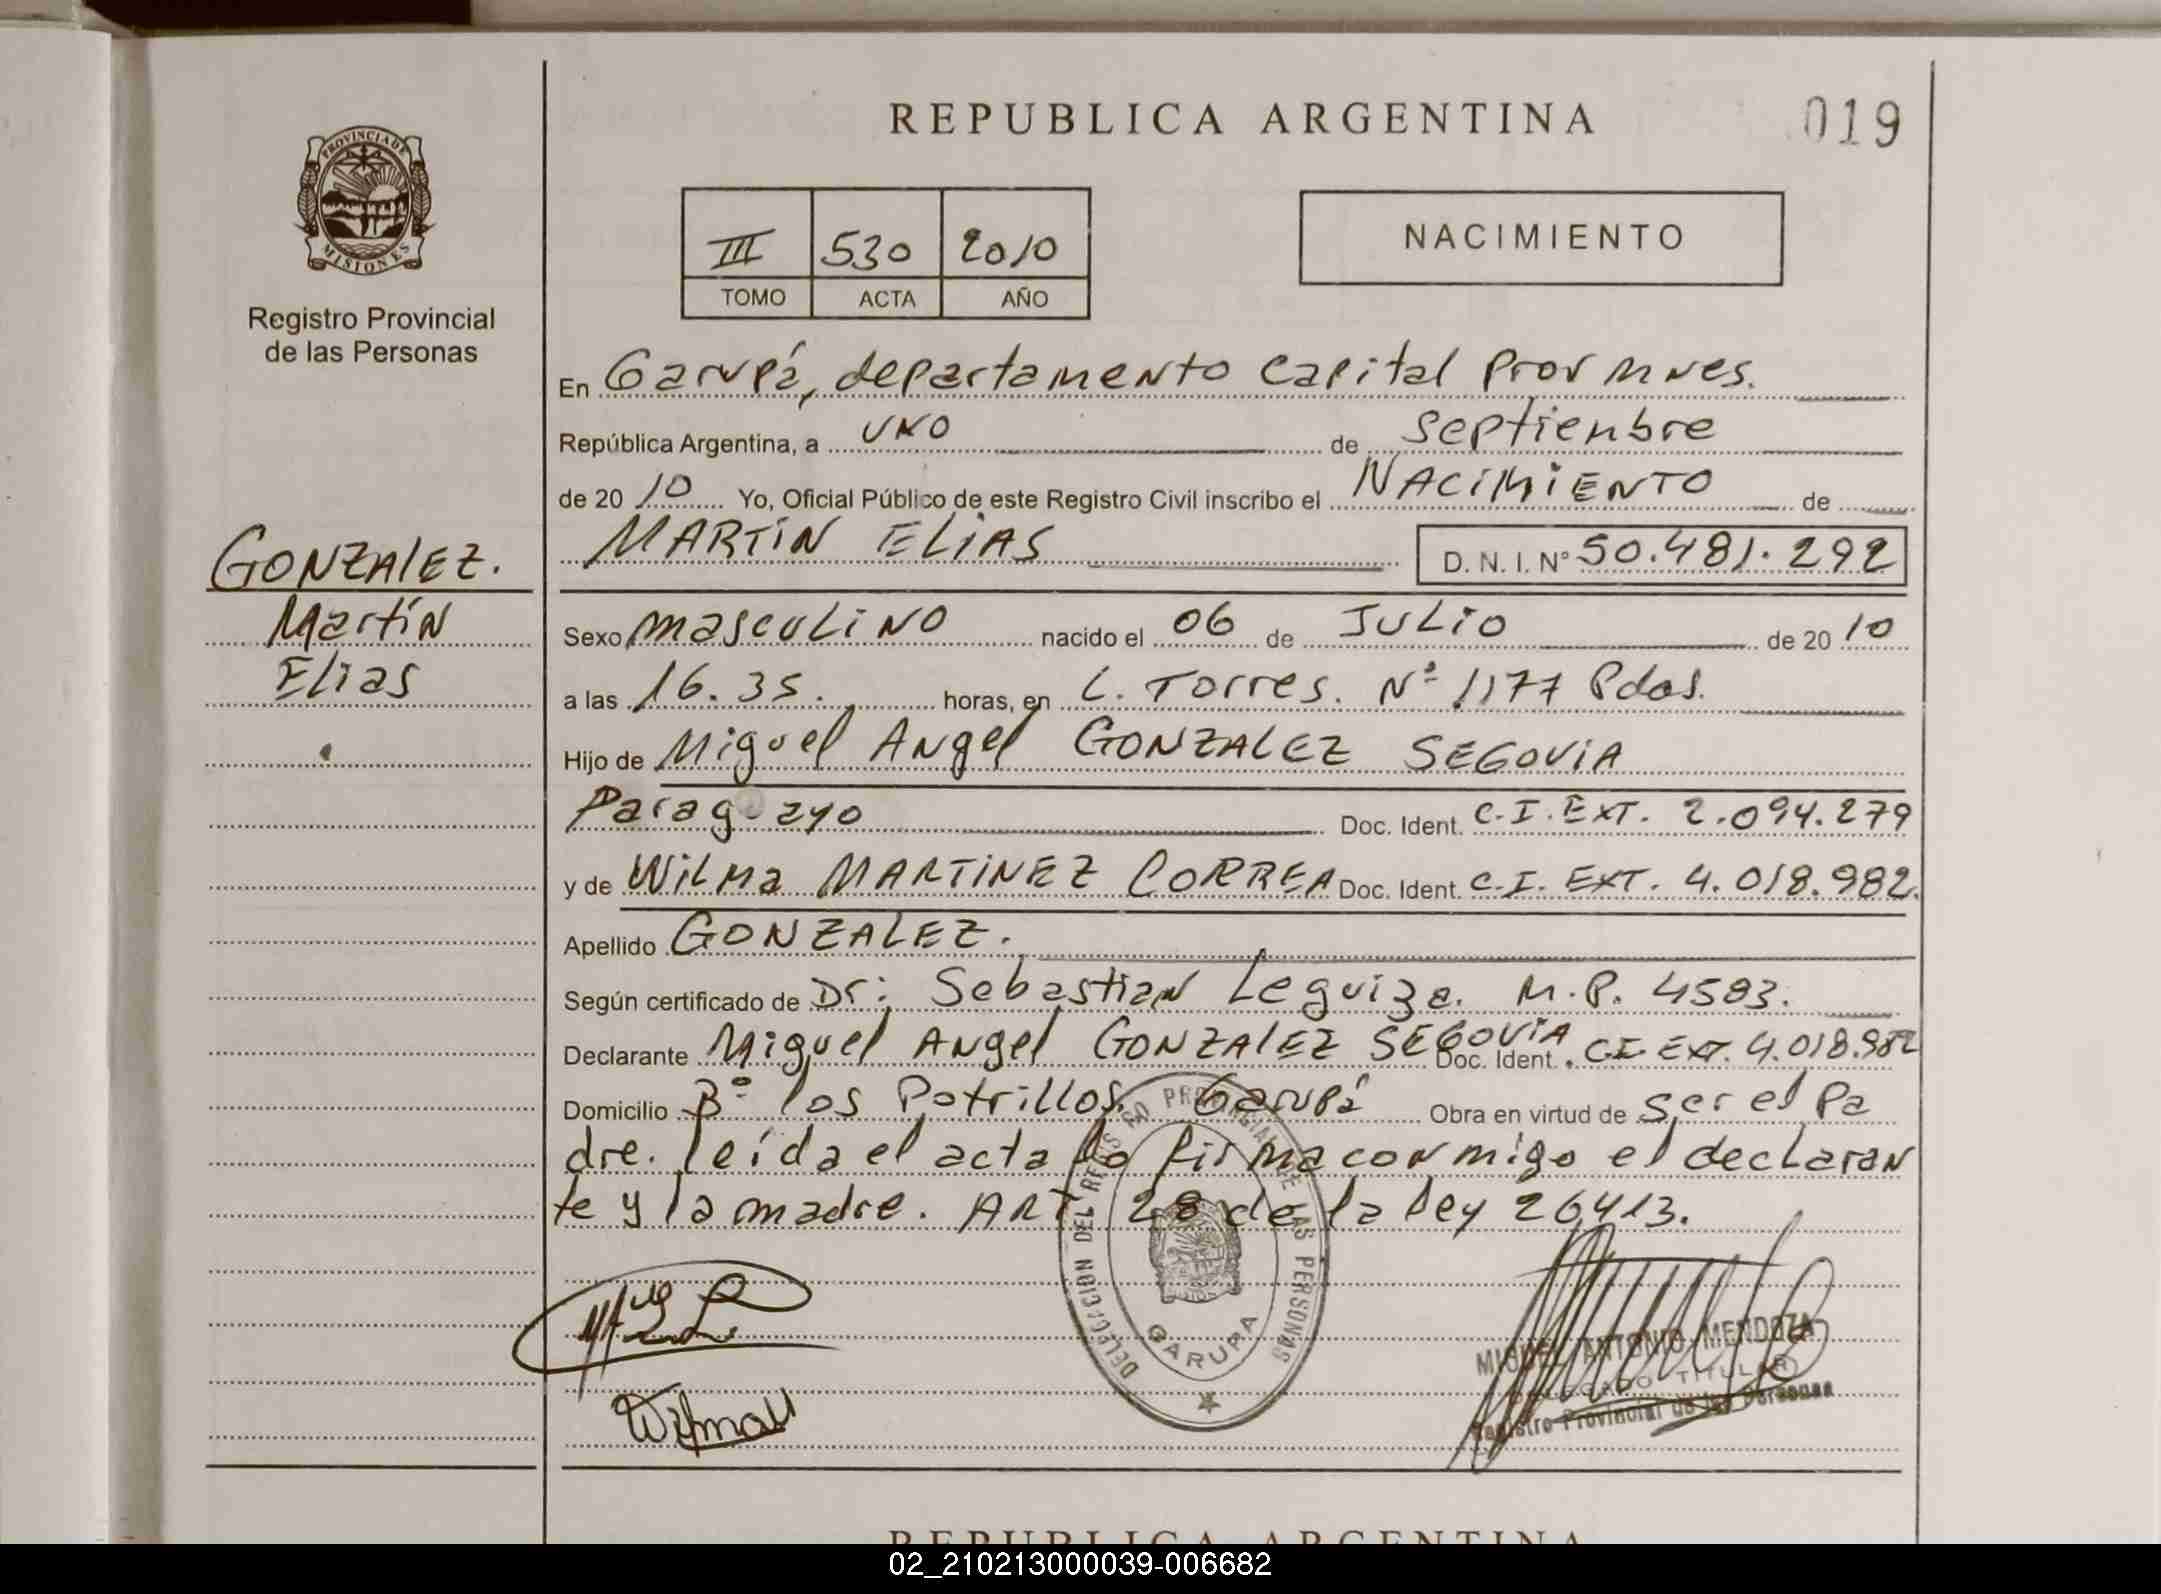 REPUBLICA ARGENTINA
019
PROVINCIA DE
MISIONES
Registro Provincial
de las Personas
III 530 2010
TOMO ACTA AÑO
NACIMIENTO
En Garupá, departamento Capital Prov Mnes.
República Argentina, a uno de septienbre
de 20 10 Yo, Oficial Público de este Registro Civil inscribo el NACIMIENTO de
MARTIN ELIAS D. N. I. Nº 50.481.292
GONZALEZ.
Martín
Elias
Sexo masculino nacido el 06 de JULIO de 20 10
a las 16.35. horas, en L. Torres. Nº 1177 Pdas.
Hijo de Miguel Angel GONZALEZ SEGOVIA
Paraguayo Doc. Ident. C.I. EXT. 2.094.279
y de Wilma MARTINEZ CORREA Doc. Ident. C.I. EXT. 4.018.982.
Apellido GONZALEZ.
Según certificado de Dr: Sebastian Leguiza. M.P. 4583.
Declarante Miguel Angel GONZALEZ SEGOVIA Doc. Ident. C.I. EXT. 4.018.982
Domicilio Bº los Potrillos. Garupá Obra en virtud de ser el Pa
dre. leída el acta la firma conmigo el declaran
te y la madre. ART 28 de la ley 26413.
DELEGACION DEL REGISTRO PROVINCIAL DE LAS PERSONAS
GARUPA
Wilma
MIGUEL ANTONIO MENDOZA
DELEGADO TITULAR
Registro Provincial de las Personas
REPUBLICA ARGENTINA
02_210213000039-006682